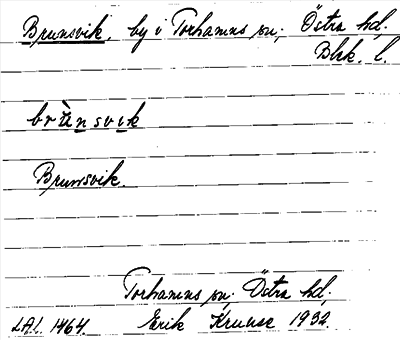 Brunsvik, by i Torhamns sn; Östra hd.
Blek. l.
brùnsvik
Brunsvik.
Torhamns sn; Östra hd,
LAL. 1464. Erik Kruuse 1932.